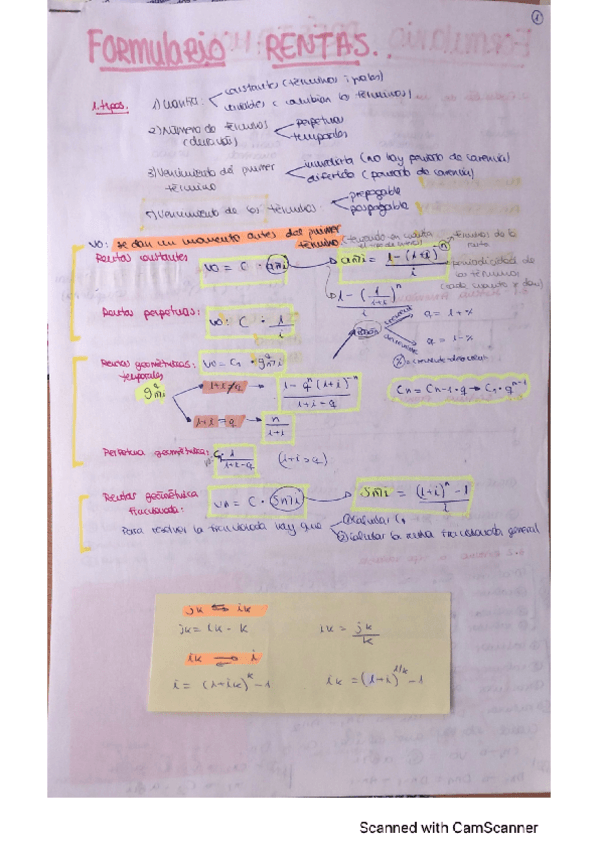 1
FORMULARIO RENTAS.
1. tipos. 1) Cuantía: constantes (términos iguales)
variables (cambian los términos)
2) Número de términos (duración) perpetuas
temporales
3) Vencimiento del primer término inmediata (no hay periodo de carencia)
diferida (periodo de carencia)
4) Vencimiento de los términos: prepagable
pospagable
V0: se dan un momento antes del primer término
Rentas constantes
V0 = C · a n¬i → a n¬i = 1 - (1+i)^-n / i
1 - (1/1+i)^n / i
Rentas perpetuas: V0 = C · 1/i
creciente q = 1 + x
decreciente q = 1 - x
Rentas geométricas temporales V0 = C1 · g^q n¬i
Cn = Cn-1 · q → C1 · q^n-1
g^q n¬i
1+i ≠ q → 1 - q^n (1+i)^-n / 1+i-q
1+i = q → n / 1+i
Perpetua geométrica: C · 1 / 1+i-q (1+i > q)
Rentas geométrica fraccionada: Vn = C · S n¬i → S n¬i = (1+i)^n - 1 / i
Para resolver la fraccionada hay que ① calcular C1
② calcular la renta fraccionada general
jk ⇆ ik
jk = ik · k ik = jk / k
ik ⇌ i
i = (1+ik)^k - 1 ik = (1+i)^1/k - 1
Scanned with CamScanner